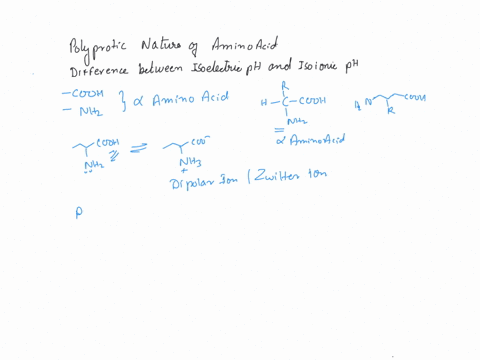 Polyprotic Nature of Amino Acid
Difference between Isoelectric pH and Isoionic pH
-COOH
-NH2 } α Amino Acid
R
H-C-COOH
NH2
α Amino Acid
COOH
R
COOH ⇌ COO-
NH2
NH3
+
Dipolar Ion / Zwitter Ion